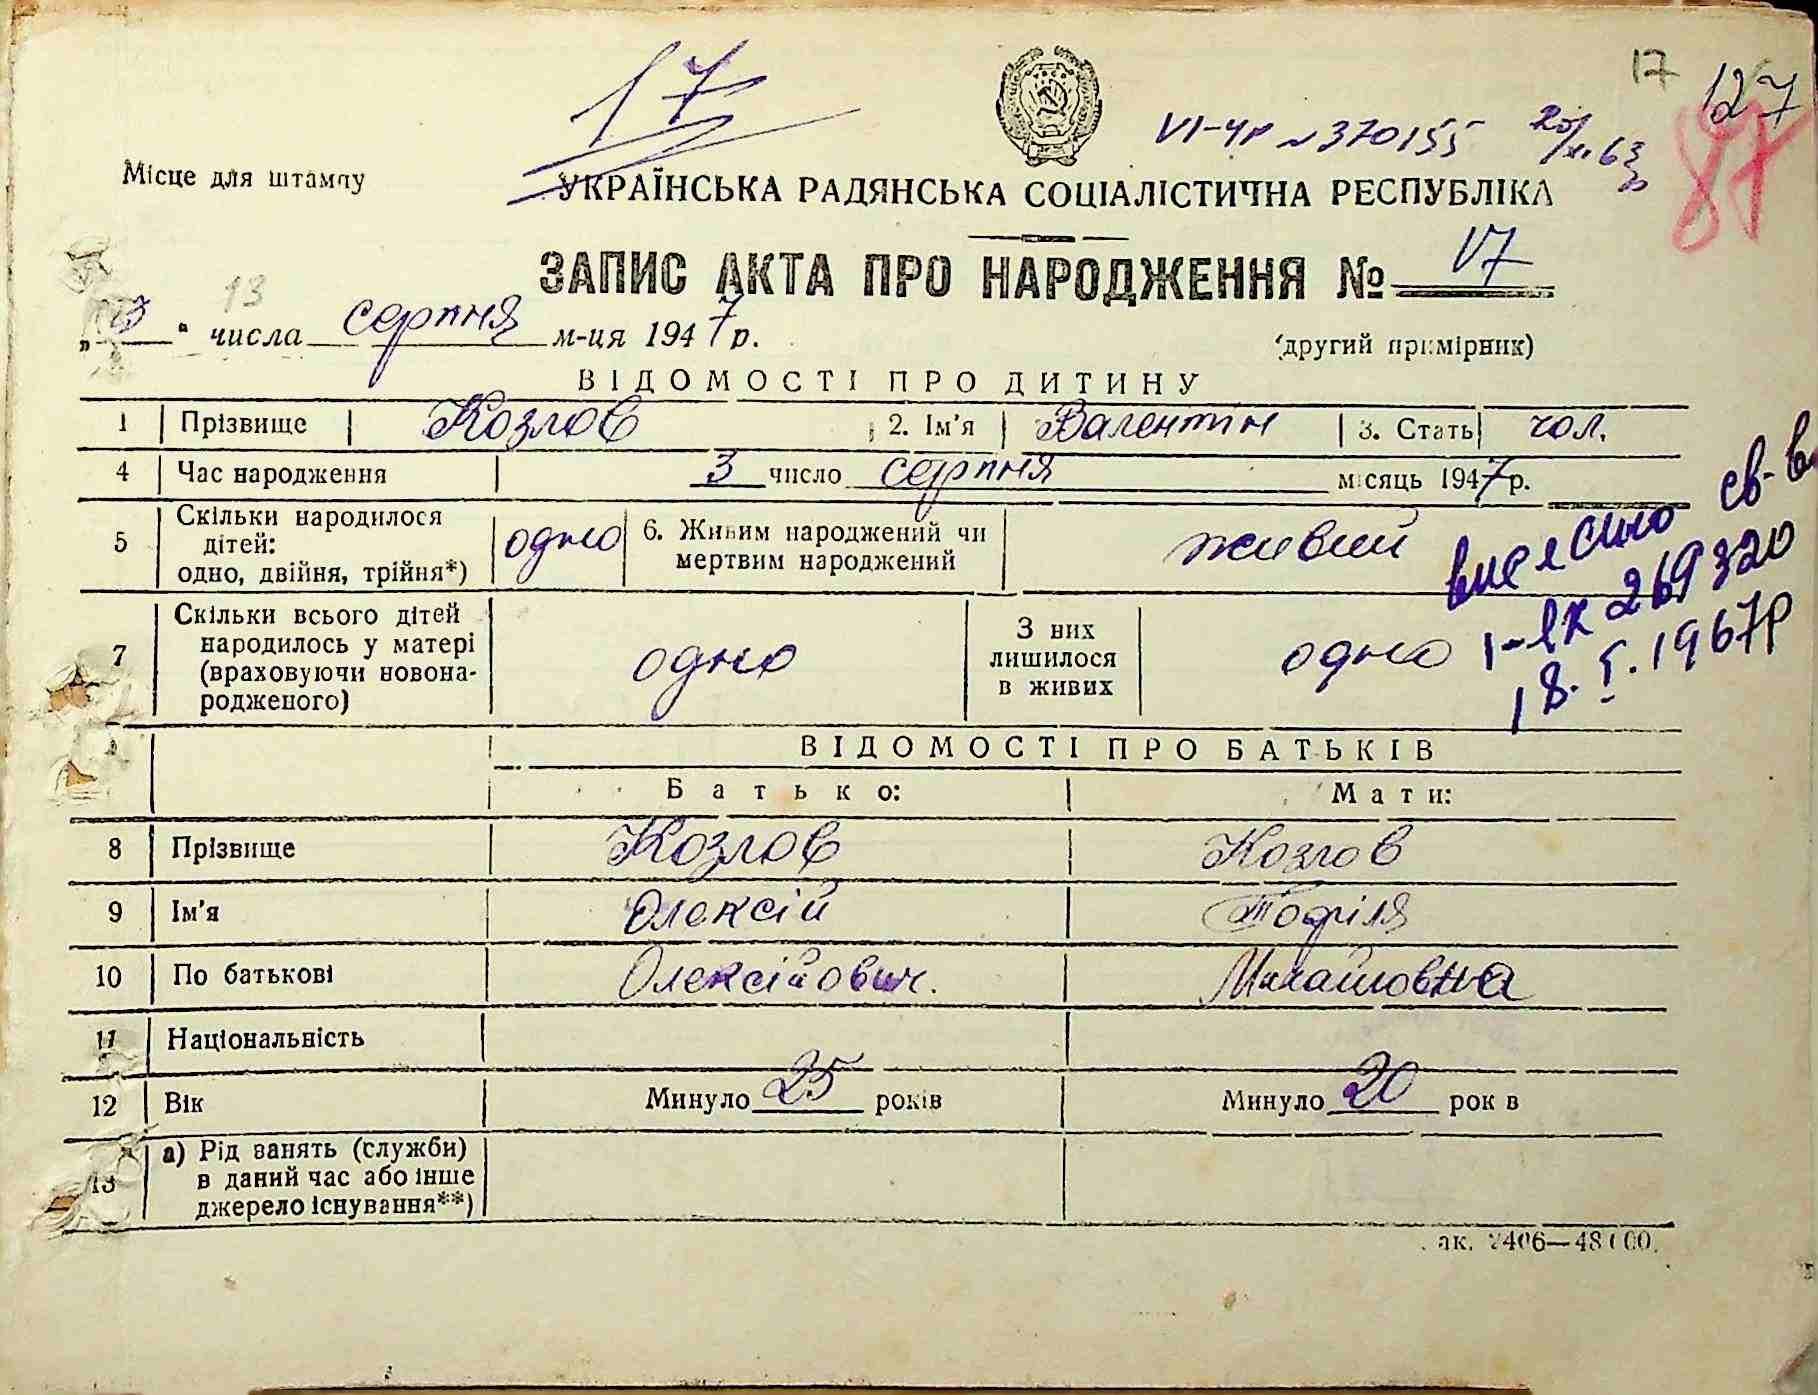 17
17
127
VI-ЧР №370155
87
Місце для штампу
УКРАЇНСЬКА РАДЯНСЬКА СОЦІАЛІСТИЧНА РЕСПУБЛІКА
ЗАПИС АКТА ПРО НАРОДЖЕННЯ № 17
13
„ 3 “ числа серпня м-ця 1947 р.
(другий примірник)
ВІДОМОСТІ ПРО ДИТИНУ
1 Прізвище Козлов 2. Ім'я Валентін 3. Стать чол.
4 Час народження 3 число серпня місяць 1947 р.
5 Скільки народилося дітей: одно, двійня, трійня*) одно 6. Живим народжений чи мертвим народжений живий
св-во
269320
18.I.1967р
7 Скільки всього дітей народилось у матері (враховуючи новонародженого) одно З них лишилося в живих одно
ВІДОМОСТІ ПРО БАТЬКІВ
Батько: Мати:
8 Прізвище Козлов Козлов
9 Ім'я Олексій
10 По батькові Олексійович. Михайловна
11 Національність
12 Вік Минуло 25 років Минуло 20 рок в
13 а) Рід занять (служби) в даний час або інше джерело існування**)